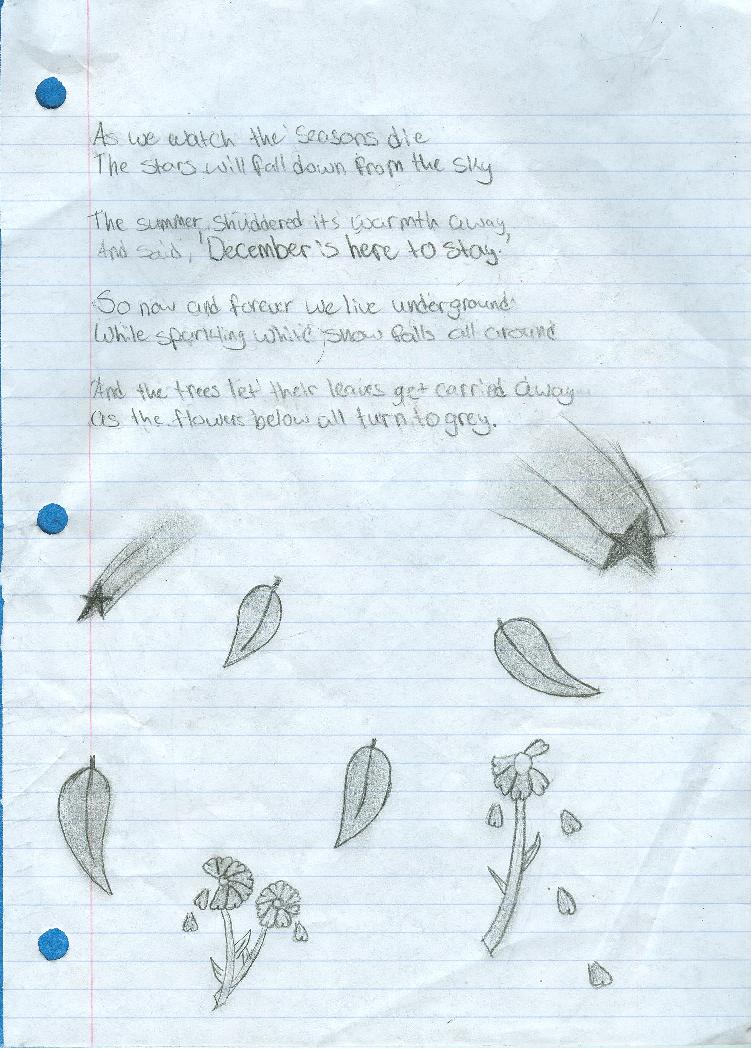 As we watch the seasons die
The stars will fall down from the sky
The summer shuddered its warmth away,
And said, 'December is here to stay.'
So now and forever we live underground
While sparkling white snow falls all around
And the trees let their leaves get carried away
as the flowers below all turn to grey.